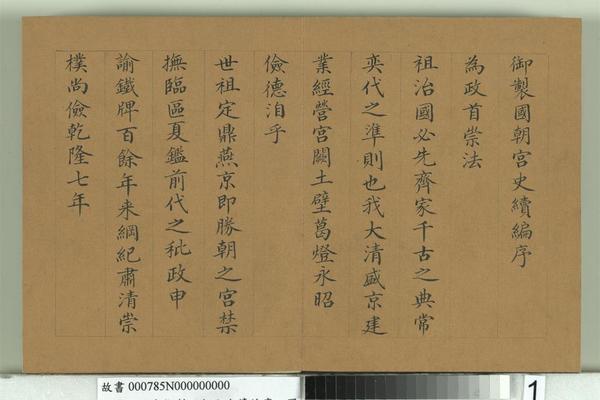 御製國朝宮史續編序
為政首崇法
祖治國必先齊家千古之典常
奕代之準則也我大清盛京建
業經營宮闕土壁葛燈永昭
儉德洎乎
世祖定鼎燕京即勝朝之宮禁
撫臨區夏鑑前代之秕政申
諭鐵牌百餘年来綱紀肅清崇
樸尚儉乾隆七年
故書 000785N000000000
1